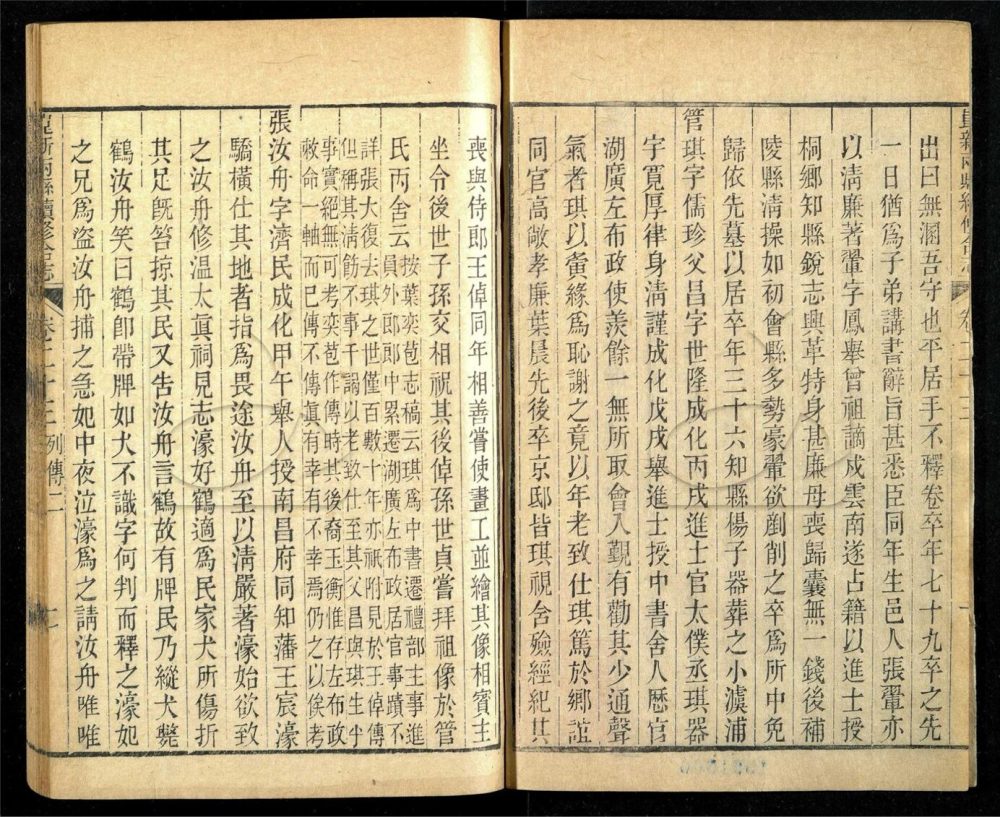 出曰無溷吾守也平居手不釋卷卒年七十九卒之先
一日猶爲子弟講書辭旨甚悉臣同年生邑人張翬亦
以清廉著翬字鳳舉曾祖謫戍雲南遂占籍以進士授
桐鄉知縣銳志興革特身甚廉母喪歸囊無一錢後補
陵縣清操如初會縣多勢豪翬欲剷削之卒爲所中免
歸依先墓以居卒年三十六知縣楊子器葬之小澞浦
管琪字儒珍父昌字世隆成化丙戌進士官太僕丞琪器
宇寬厚律身清謹成化戊戌舉進士授中書舍人歷官
湖廣左布政使羨餘一無所取會入覲有勸其少通聲
氣者琪以夤緣爲恥謝之竟以年老致仕琪篤於鄉誼
同官高敞孝廉葉晨先後卒京邸皆琪視含殮經紀其
喪與侍郎王倬同年相善嘗使畫工並繪其像相賓主
坐令後世子孫交相祝其後倬孫世貞嘗拜祖像於管
氏丙舍云
按葉奕苞志稿云琪爲中書遷禮部主事進
員外郎郎中累遷湖廣左布政居官事蹟不
詳張大復去琪之世僅百數十年亦祇附見於王倬傳
但稱其清飭不事干謁以老致仕至其父昌與琪生平
事實絕無可考奕苞作傳時其後裔玉衡惟存左布政
敕命一軸而已傳不傳眞有幸有不幸焉仍之以俟考
張汝舟字濟民成化甲午舉人授南昌府同知藩王宸濠
驕橫仕其地者指爲畏途汝舟至以清嚴著濠始欲致
之汝舟修溫太眞祠見志濠好鶴適爲民家犬所傷折
其足既笞掠其民又告汝舟言鶴故有牌民乃縱犬斃
鶴汝舟笑曰鶴卽帶牌如犬不識字何判而釋之濠妃
之兄爲盜汝舟捕之急妃中夜泣濠爲之請汝舟唯唯
崑新兩縣續修合志
卷二十三 列傳二